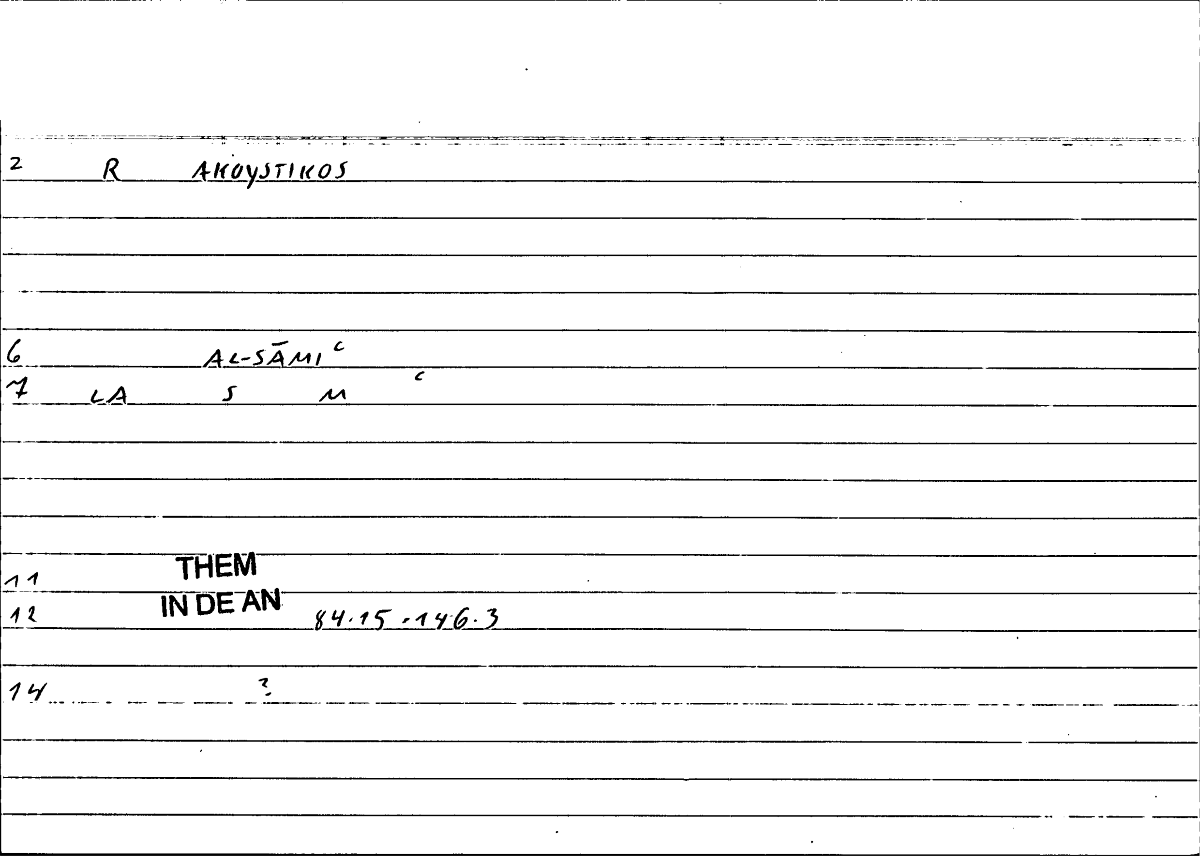 2 R AKOYSTIKOS
6 AL-SĀMI ͨ
7 LA S M ͨ
THEM
11
IN DE AN
12 84.15-146.3
14 ?